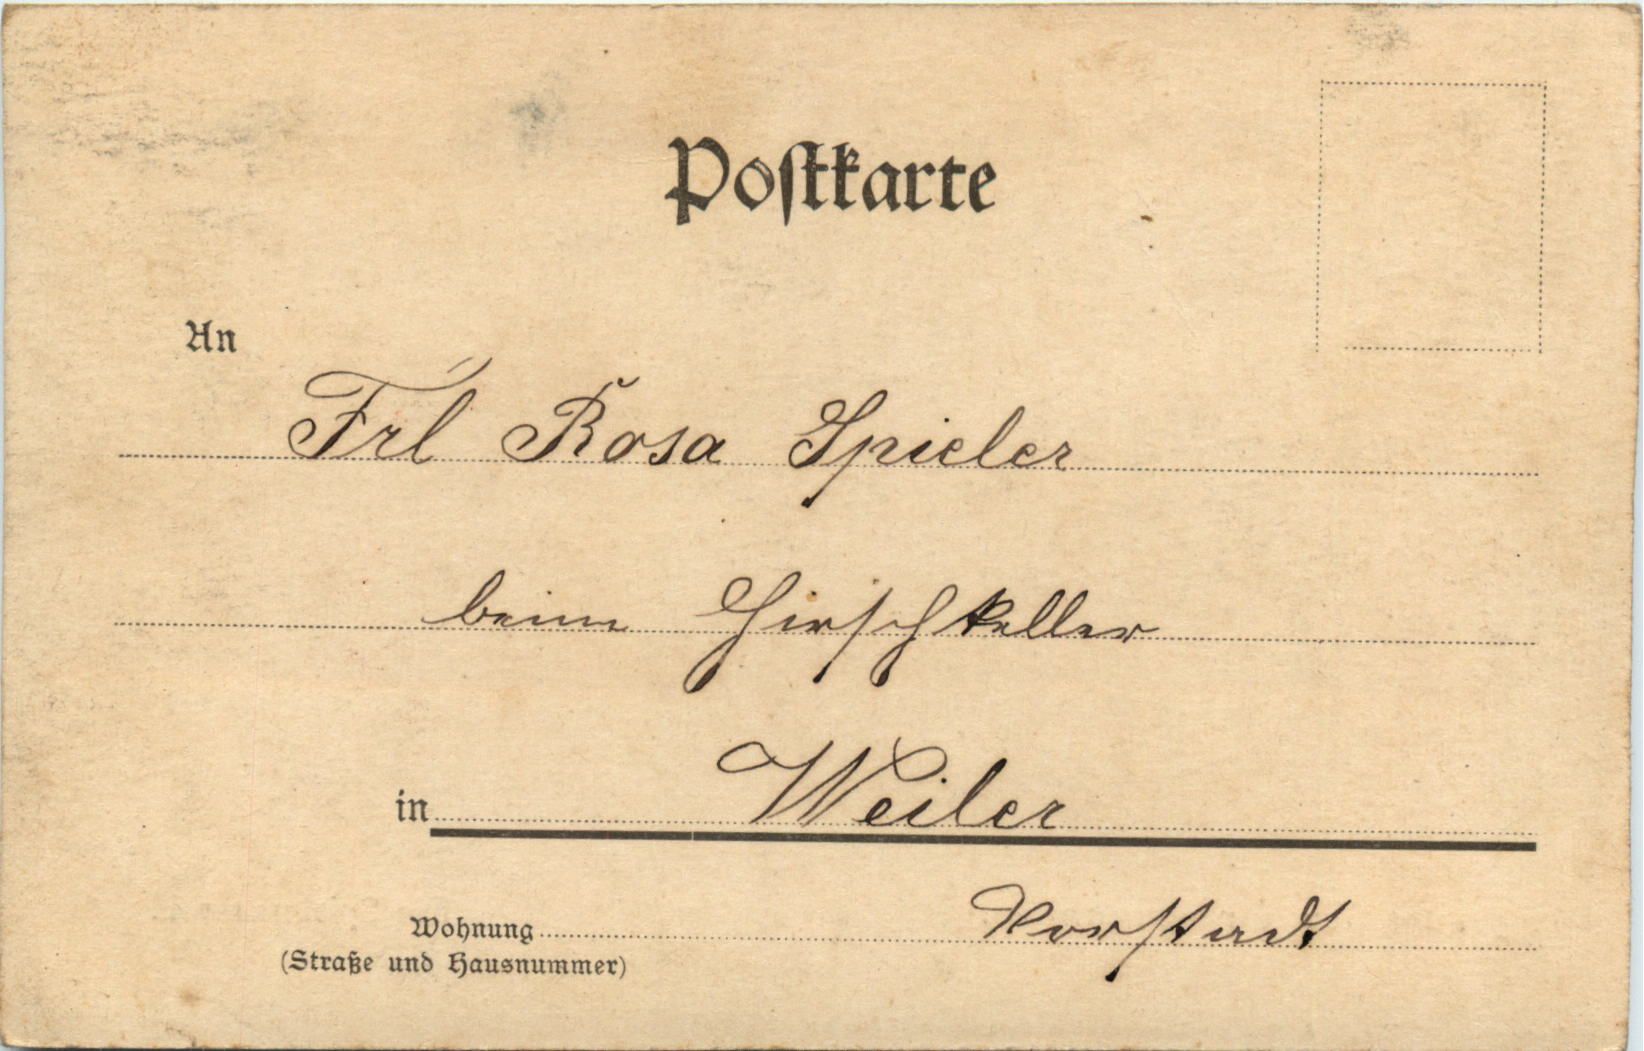 Postkarte
An
Frl Rosa Spieler
beim Hirschkeller
in Weiler
Wohnung Vorstadt
(Straße und Hausnummer)